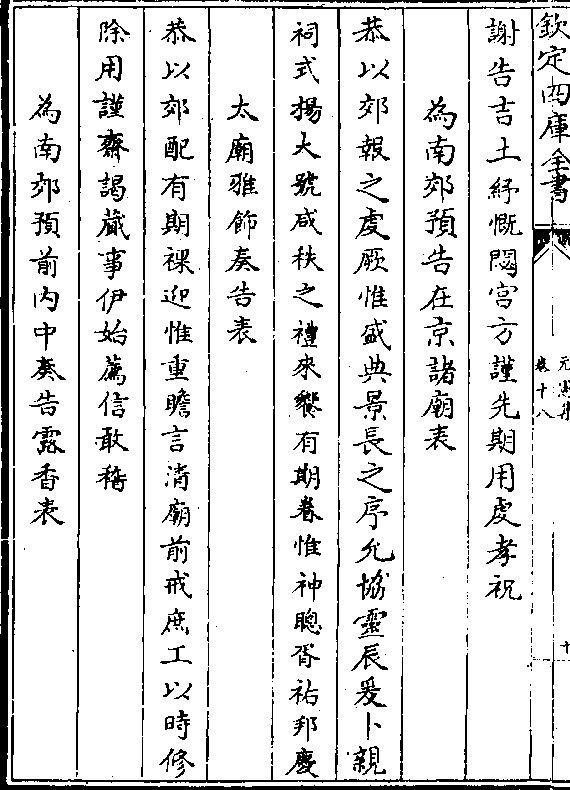 欽定四庫全書
元憲集
卷十八
十
謝告吉土紓慨閟宮方謹先期用虔孝祝
為南郊預告在京諸廟表
恭以郊報之虔厥惟盛典景長之序允協靈辰爰卜親
祠式揚大號咸秩之禮來饗有期眷惟神聰胥祐邦慶
太廟雅飾奏告表
恭以郊配有期祼迎惟重瞻言清廟前戒庶工以時修
除用謹齋謁蕆事伊始薦信敢稽
為南郊預前內中奏告露香表